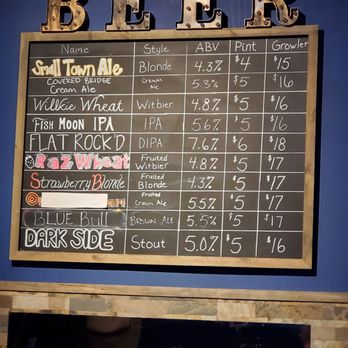 BEER
Name Style ABV Pint Growler
Small Town Ale Blonde 4.3% $4 $15
COVERED BRIDGE Cream Ale Cream Ale 5.3% $5 $16
Willkie Wheat Witbier 4.8% $5 $16
FISH MOON IPA IPA 5.6% $5 $16
FLAT ROCK'D DIPA 7.6% $6 $18
Raz Wheat Fruited Witbier 4.8% $5 $17
Strawberry Blonde Fruited Blonde 4.3% $5 $17
Fruited Cream Ale 5.5% $5 $17
BLUE Bull BROWN ALE 5.5% $5 $17
DARK SIDE Stout 5.0% $5 $16